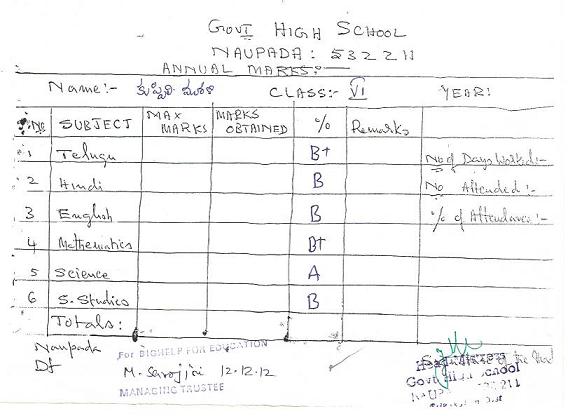 GOVT HIGH SCHOOL
NAUPADA: 532211
ANNUAL MARKS:-
Name:- కుప్పిలి CLASS:- VI YEAR:
S.No SUBJECT MAX MARKS MARKS OBTAINED % Remarks
1 Telugu B+ No of Days Worked:-
2 Hindi B No Attended:-
3 English B % of Attendance:-
4 Mathematics B+
5 Science A
6 S.Studies B
Totals:
Naupada
Dt
For BIGHELP FOR EDUCATION
M. Sarojini 12.12.12
MANAGING TRUSTEE
of the Head
Govt High School
211